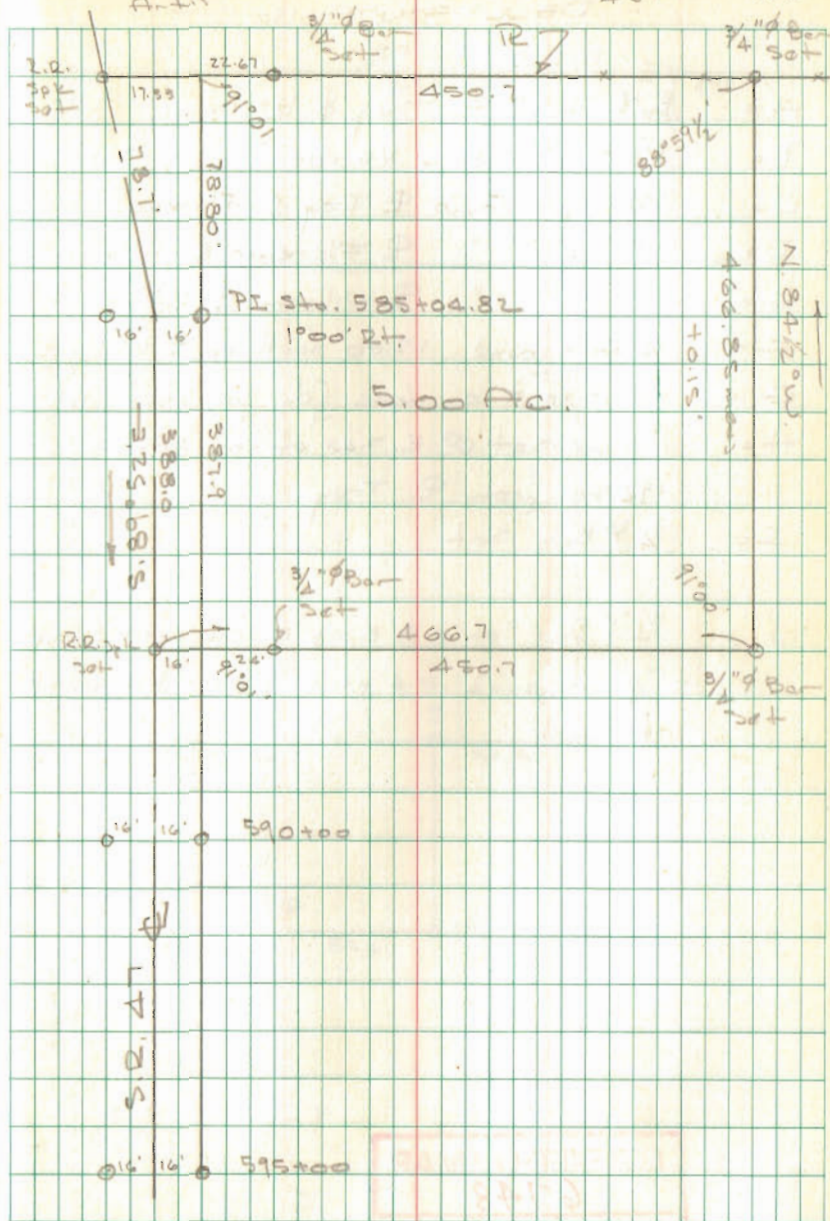 3/4"φ Bar
Set
R
3/4"φ Bar
Set
R.R.
Spk
Set
17.33
22.67
91°01'
450.7
88°59 1/2
78.7'
78.80'
PI Sta. 585+04.82
1°00' Rt.
16' 16'
5.00 Ac.
N. 84 1/2° W.
466.85 meas
+0.15'
S. 89°52' E
388.0
387.9
3/4"φ Bar
Set
91°00'
R.R. Spk
Set
16'
24'
91°01'
466.7
450.7
3/4"φ Bar
Set
16' 16' 590+00
S.R. 47
16' 16' 595+00